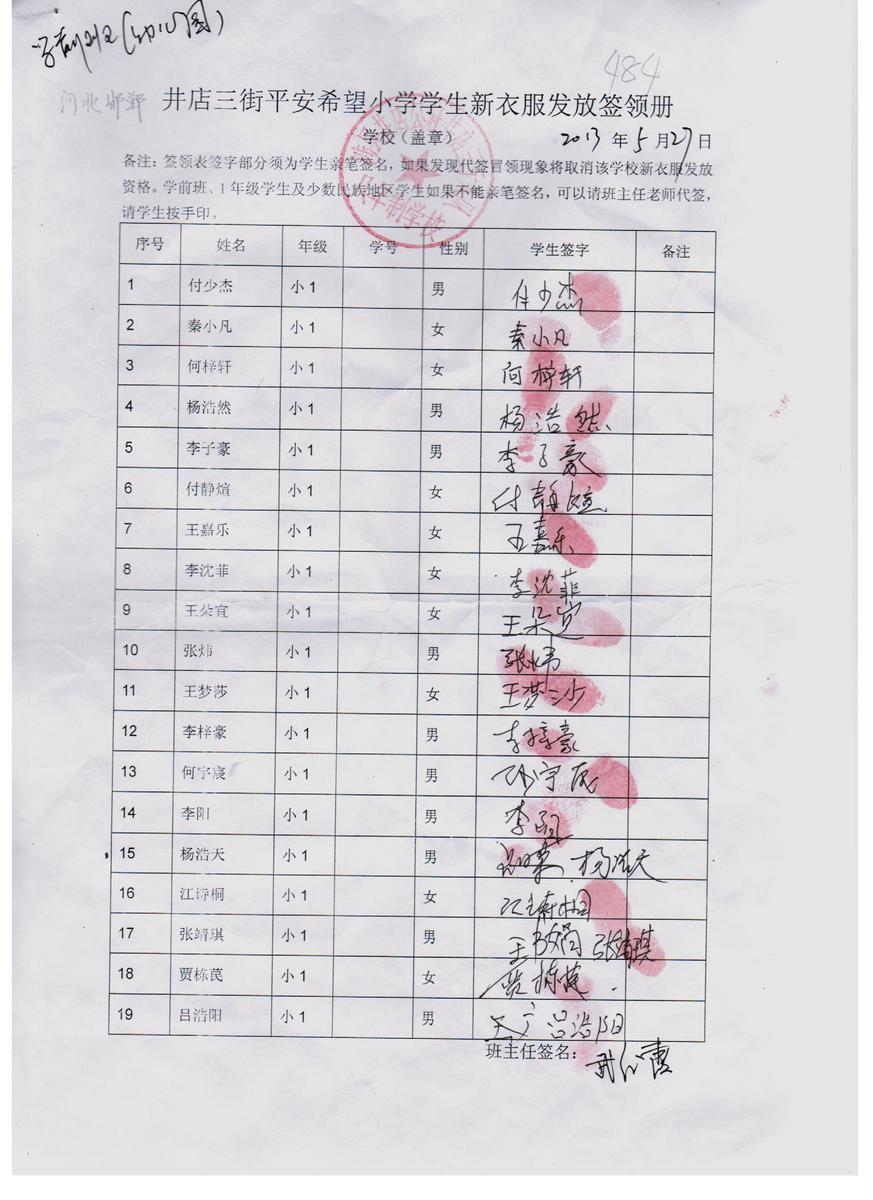 学前班(幼儿园)
484
河北邯郸 井店三街平安希望小学学生新衣服发放签领册
学校（盖章） 2013 年 5 月 27 日
备注：签领表签字部分须为学生亲笔签名，如果发现代签冒领现象将取消该学校新衣服发放
资格。学前班、1 年级学生及少数民族地区学生如果不能亲笔签名，可以请班主任老师代签，
请学生按手印。
序号 姓名 年级 学号 性别 学生签字 备注
1 付少杰 小 1 男 付少杰
2 秦小凡 小 1 女 秦小凡
3 何梓轩 小 1 女 何梓轩
4 杨浩然 小 1 男 杨浩然
5 李子豪 小 1 男 李子豪
6 付静煊 小 1 女 付静煊
7 王嘉乐 小 1 女 王嘉乐
8 李沈菲 小 1 女 李沈菲
9 王朵宜 小 1 女 王朵宜
10 张炜 小 1 男 张炜
11 王梦莎 小 1 女 王梦莎
12 李梓豪 小 1 男 李梓豪
13 何宇宸 小 1 男 何宇宸
14 李阳 小 1 男 李阳
15 杨浩天 小 1 男 杨浩天
16 江诗桐 小 1 女 江诗桐
17 张靖琪 小 1 男 张靖琪
18 贾栋苠 小 1 女 贾栋
19 吕浩阳 小 1 男 吕浩阳
班主任签名：